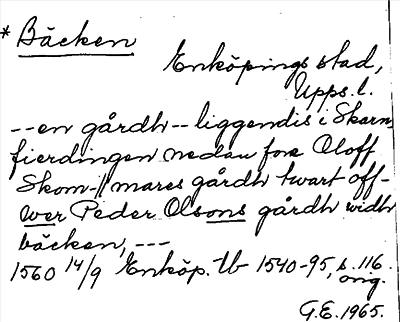 * Bäcken
Enköpings stad,
Upps. l.
-- en gårdh -- liggendis i Skarn
fierdingen nedan fore Oloff
Skom-/mares gårdh twart off-
wer Peder Olsons gårdh widh
bäcken, ---
1560 14/9 Enköp. tb 1540-95, s. 116.
orig.
G.E. 1965.